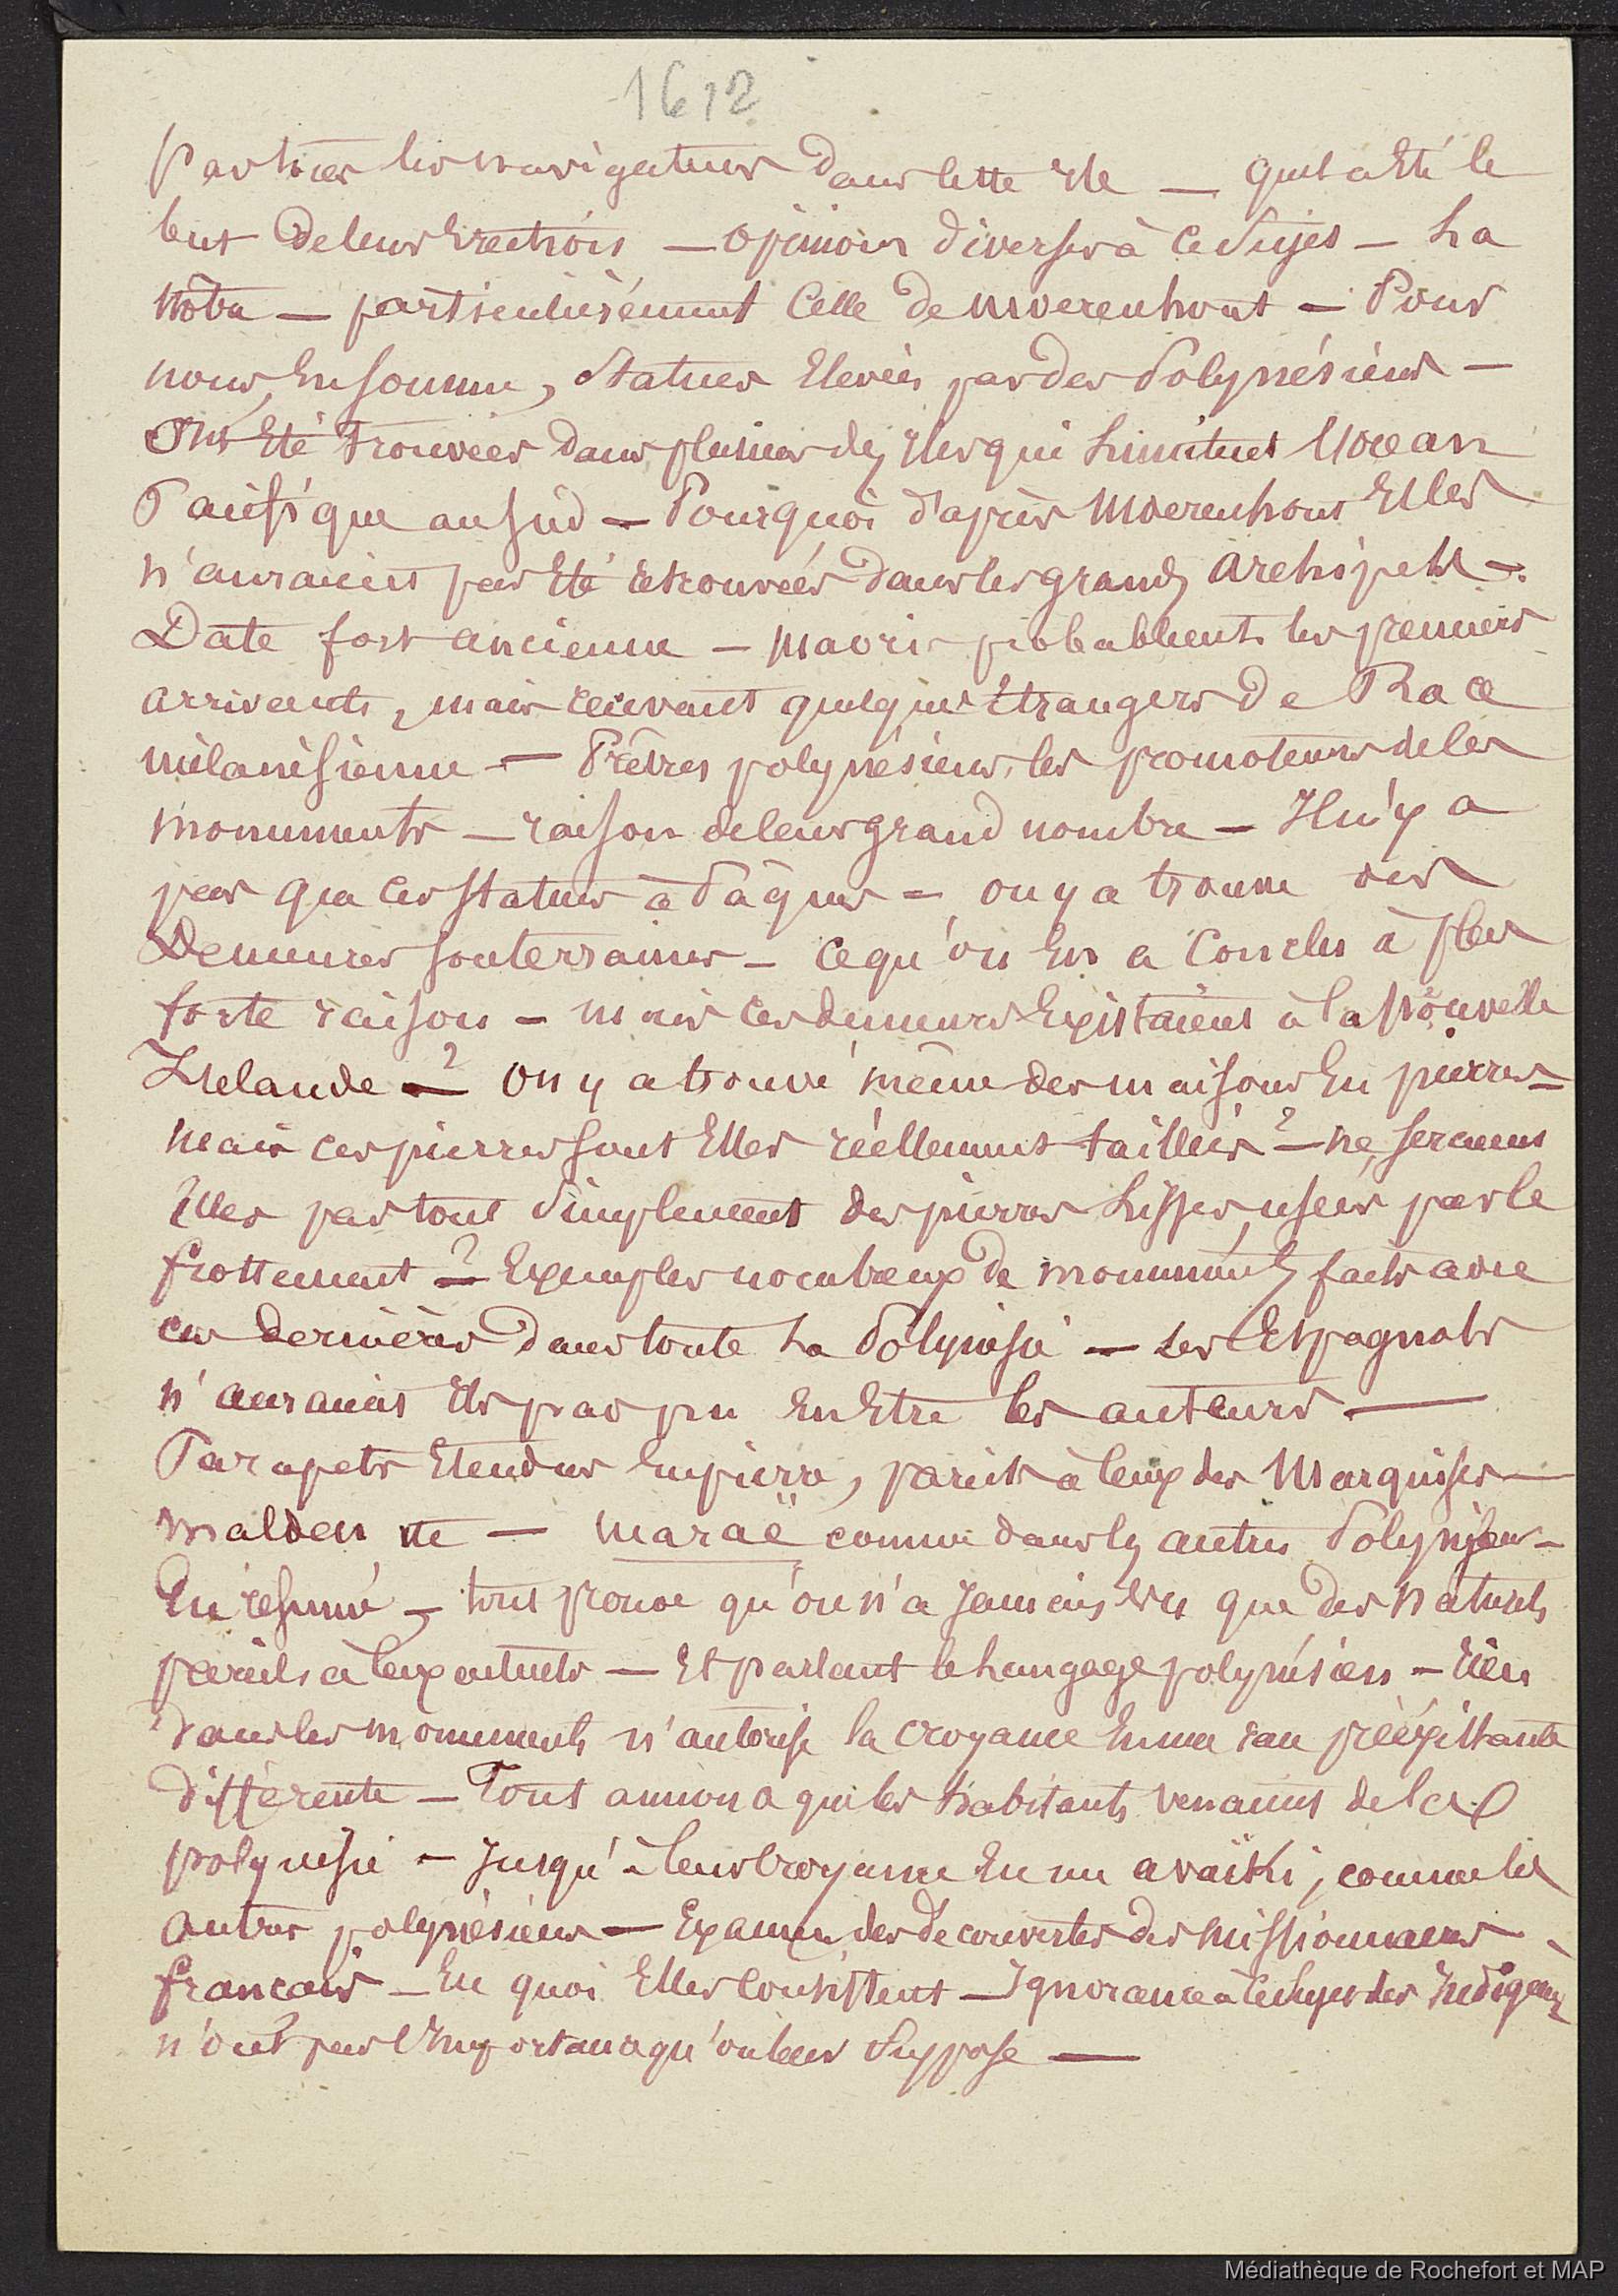 1612
par tous les navigateurs dans cette Ile — quel a Eté le
but de leur Erection — opinions diverses à ce sujet — La
nôtre — particulièrement Celle de Moerenhout — Pour
nous, En somme, Statues Elevées par des Polynésiens —
Ont Eté trouvées dans plusieurs des Iles qui Limitent l'Océan
Pacifique au sud — Pourquoi d'après Moerenhout Elles
n'auraient pas Eté retrouvées dans les grands Archipels —
Date fort ancienne — Maori probablement les premiers
arrivants, mais recevant quelques Etrangers de Race
mélanésienne — Prêtres polynésiens, les promoteurs de ces
monuments — raison de leur grand nombre — Il n'y a
pas que ces statues à Pâques — on y a trouvé des
Demeures souterraines — ce qu'on En a Conclu à plus
forte raison — mais ces demeures Existaient à la Nouvelle
Zelande — ? On y a trouvé même des maisons En pierres —
mais ces pierres sont Elles réellement taillées ? — ne seraient
Elles pas tout simplement des pierres Lisses, usées par le
frottement ? — Exemples nombreux de monuments faits avec
ces dernières dans toute La Polynésie — Les Espagnols
n'auraient Ils pas pu En Etre les auteurs —
Parapets Etendus En pierre, pareils à ceux des Marquises —
Malden ile — maraë comme dans les autres Polynésies —
En résumé — tout prouve qu'on n'a Jamais vu que des naturels
pareils à ceux actuels — Et parlant le Langage polynésien — Rien
dans les monuments n'autorise la croyance En une race préexistante
différente — Tout annonce que les habitants venaient de la
polynésie — Jusqu'à leur croyance En un avaïki, comme les
autres polynésiens — Examen des découvertes des Missionnaires
francais — En quoi Elles Consistent — Ignorance à ce sujet des Indigènes
n'ont pas l'Importance qu'on leur Suppose —
Médiathèque de Rochefort et MAP